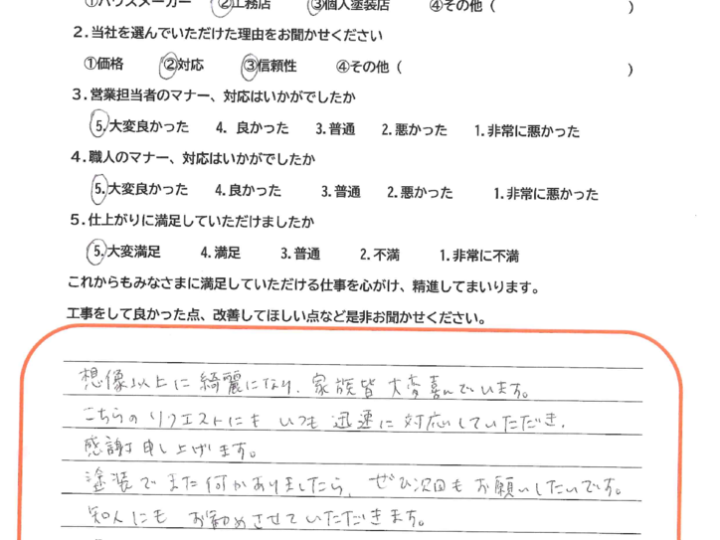 ①ハウスメーカー ②工務店 ③個人塗装店 ④その他（ ）
２.当社を選んでいただけた理由をお聞かせください
①価格 ②対応 ③信頼性 ④その他（ ）
３.営業担当者のマナー、対応はいかがでしたか
5.大変良かった 4. 良かった 3.普通 2.悪かった 1.非常に悪かった
４.職人のマナー、対応はいかがでしたか
5.大変良かった 4.良かった 3.普通 2.悪かった 1.非常に悪かった
５.仕上がりに満足していただけましたか
5.大変満足 4.満足 3.普通 2.不満 1.非常に不満
これからもみなさまに満足していただける仕事を心がけ、精進してまいります。
工事をして良かった点、改善してほしい点など是非お聞かせください。
想像以上に綺麗になり、家族皆大変喜んでいます。
こちらのリクエストにもいつも迅速に対応していただき、
感謝申し上げます。
塗装でまた何かありましたら、ぜひ次回もお願いしたいです。
知人にもお勧めさせていただきます。